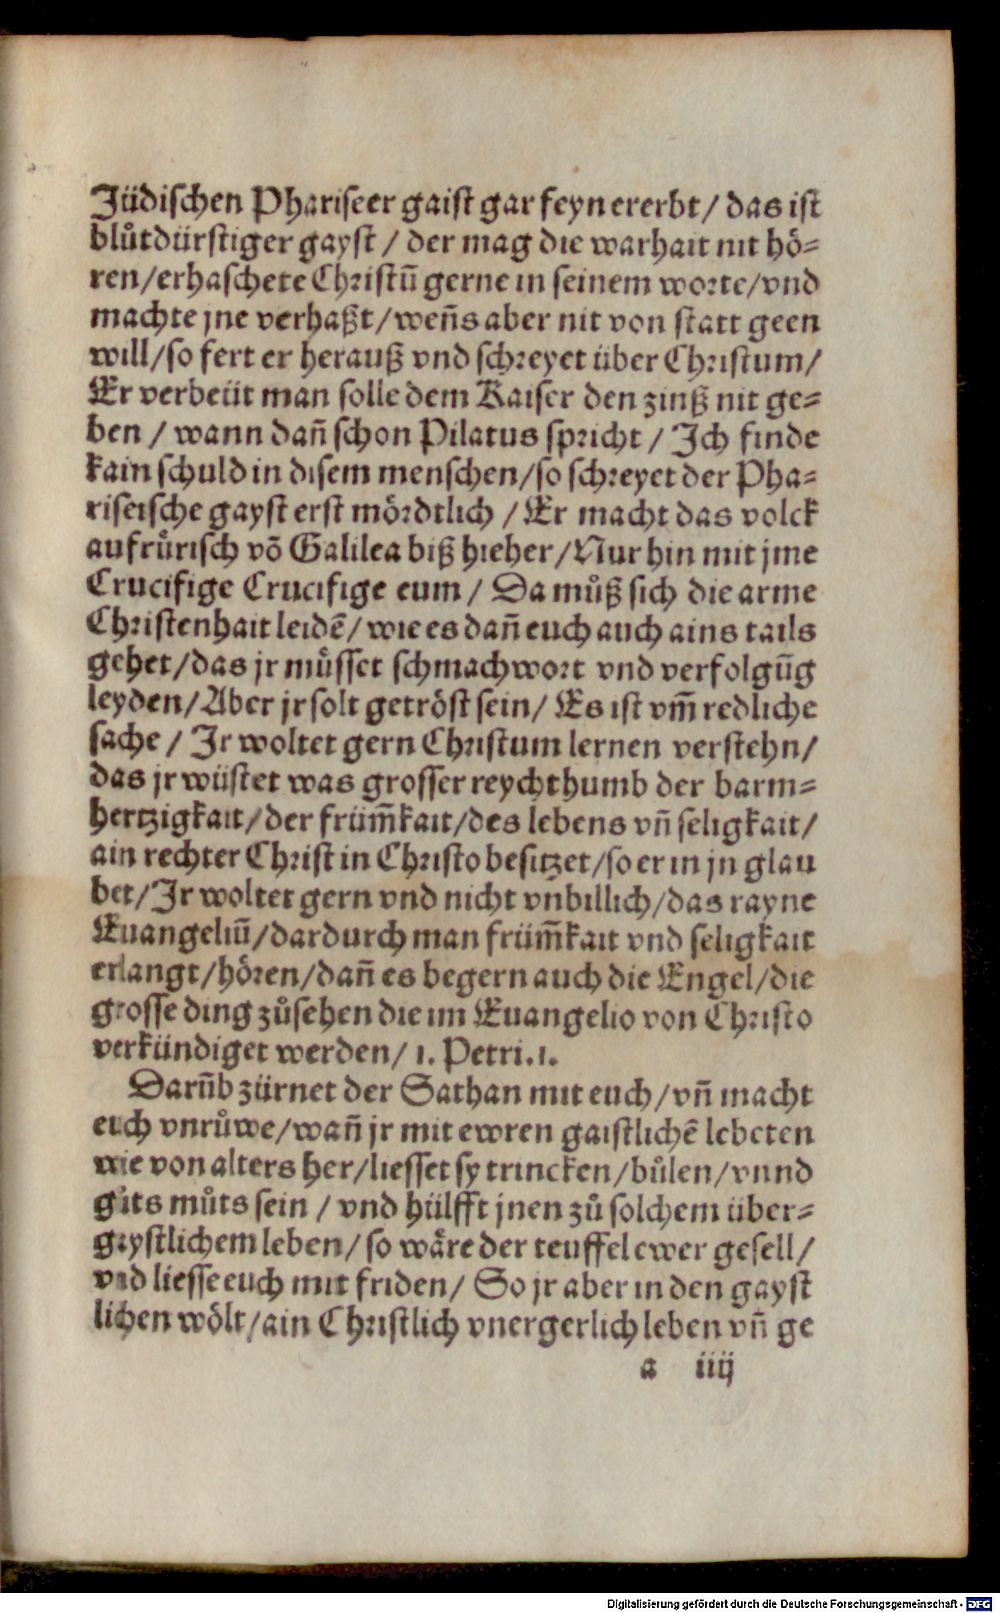 Jüdischen Phariseer gaist gar feyn ererbt / das ist
blůtdürstiger gayst / der mag die warhait nit hö-
ren / erhaschete Christū gerne in seinem worte / vnd
machte jne verhaßt / weñs aber nit von statt geen
will / so fert er herauß vnd schreyet über Christum /
Er verbeüt man solle dem Kaiser den zinß nit ge-
ben / wann dañ schon Pilatus spricht / Ich finde
kain schuld in disem menschen / so schreyet der Pha-
riseische gayst erst mördtlich / Er macht das volck
aufrůrisch võ Galilea biß hieher / Nur hin mit jme
Crucifige Crucifige eum / Da můß sich die arme
Christenhait leidē / wie es dañ euch auch ains tails
gehet / das jr můsset schmachwort vnd verfolgūg
leyden / Aber jr solt getröst sein / Es ist vm̄ redliche
sache / Ir woltet gern Christum lernen verstehn /
das jr wüstet was grosser reychthumb der barm-
hertzigkait / der früm̄kait / des lebens vñ seligkait /
ain rechter Christ in Christo besitzet / so er in jn glau
bet / Ir woltet gern vnd nicht vnbillich / das rayne
Euangeliū / dardurch man früm̄kait vnd seligkait
erlangt / hören / dañ es begern auch die Engel / die
grosse ding zůsehen die im Euangelio von Christo
verkündiget werden / 1. Petri. 1.
Darūb zürnet der Sathan mit euch / vñ macht
euch vnrůwe / wañ jr mit ewren gaistlichē lebeten
wie von alters her / liesset sy trincken / bůlen / vnnd
gůts můts sein / vnd hülfft jnen zů solchem über-
gaystlichem leben / so wäre der teuffel ewer gesell /
vnd liesse euch mit friden / So jr aber in den gayst
lichen wölt / ain Christlich vnergerlich leben vñ ge
a iiij
Digitalisierung gefördert durch die Deutsche Forschungsgemeinschaft - DFG